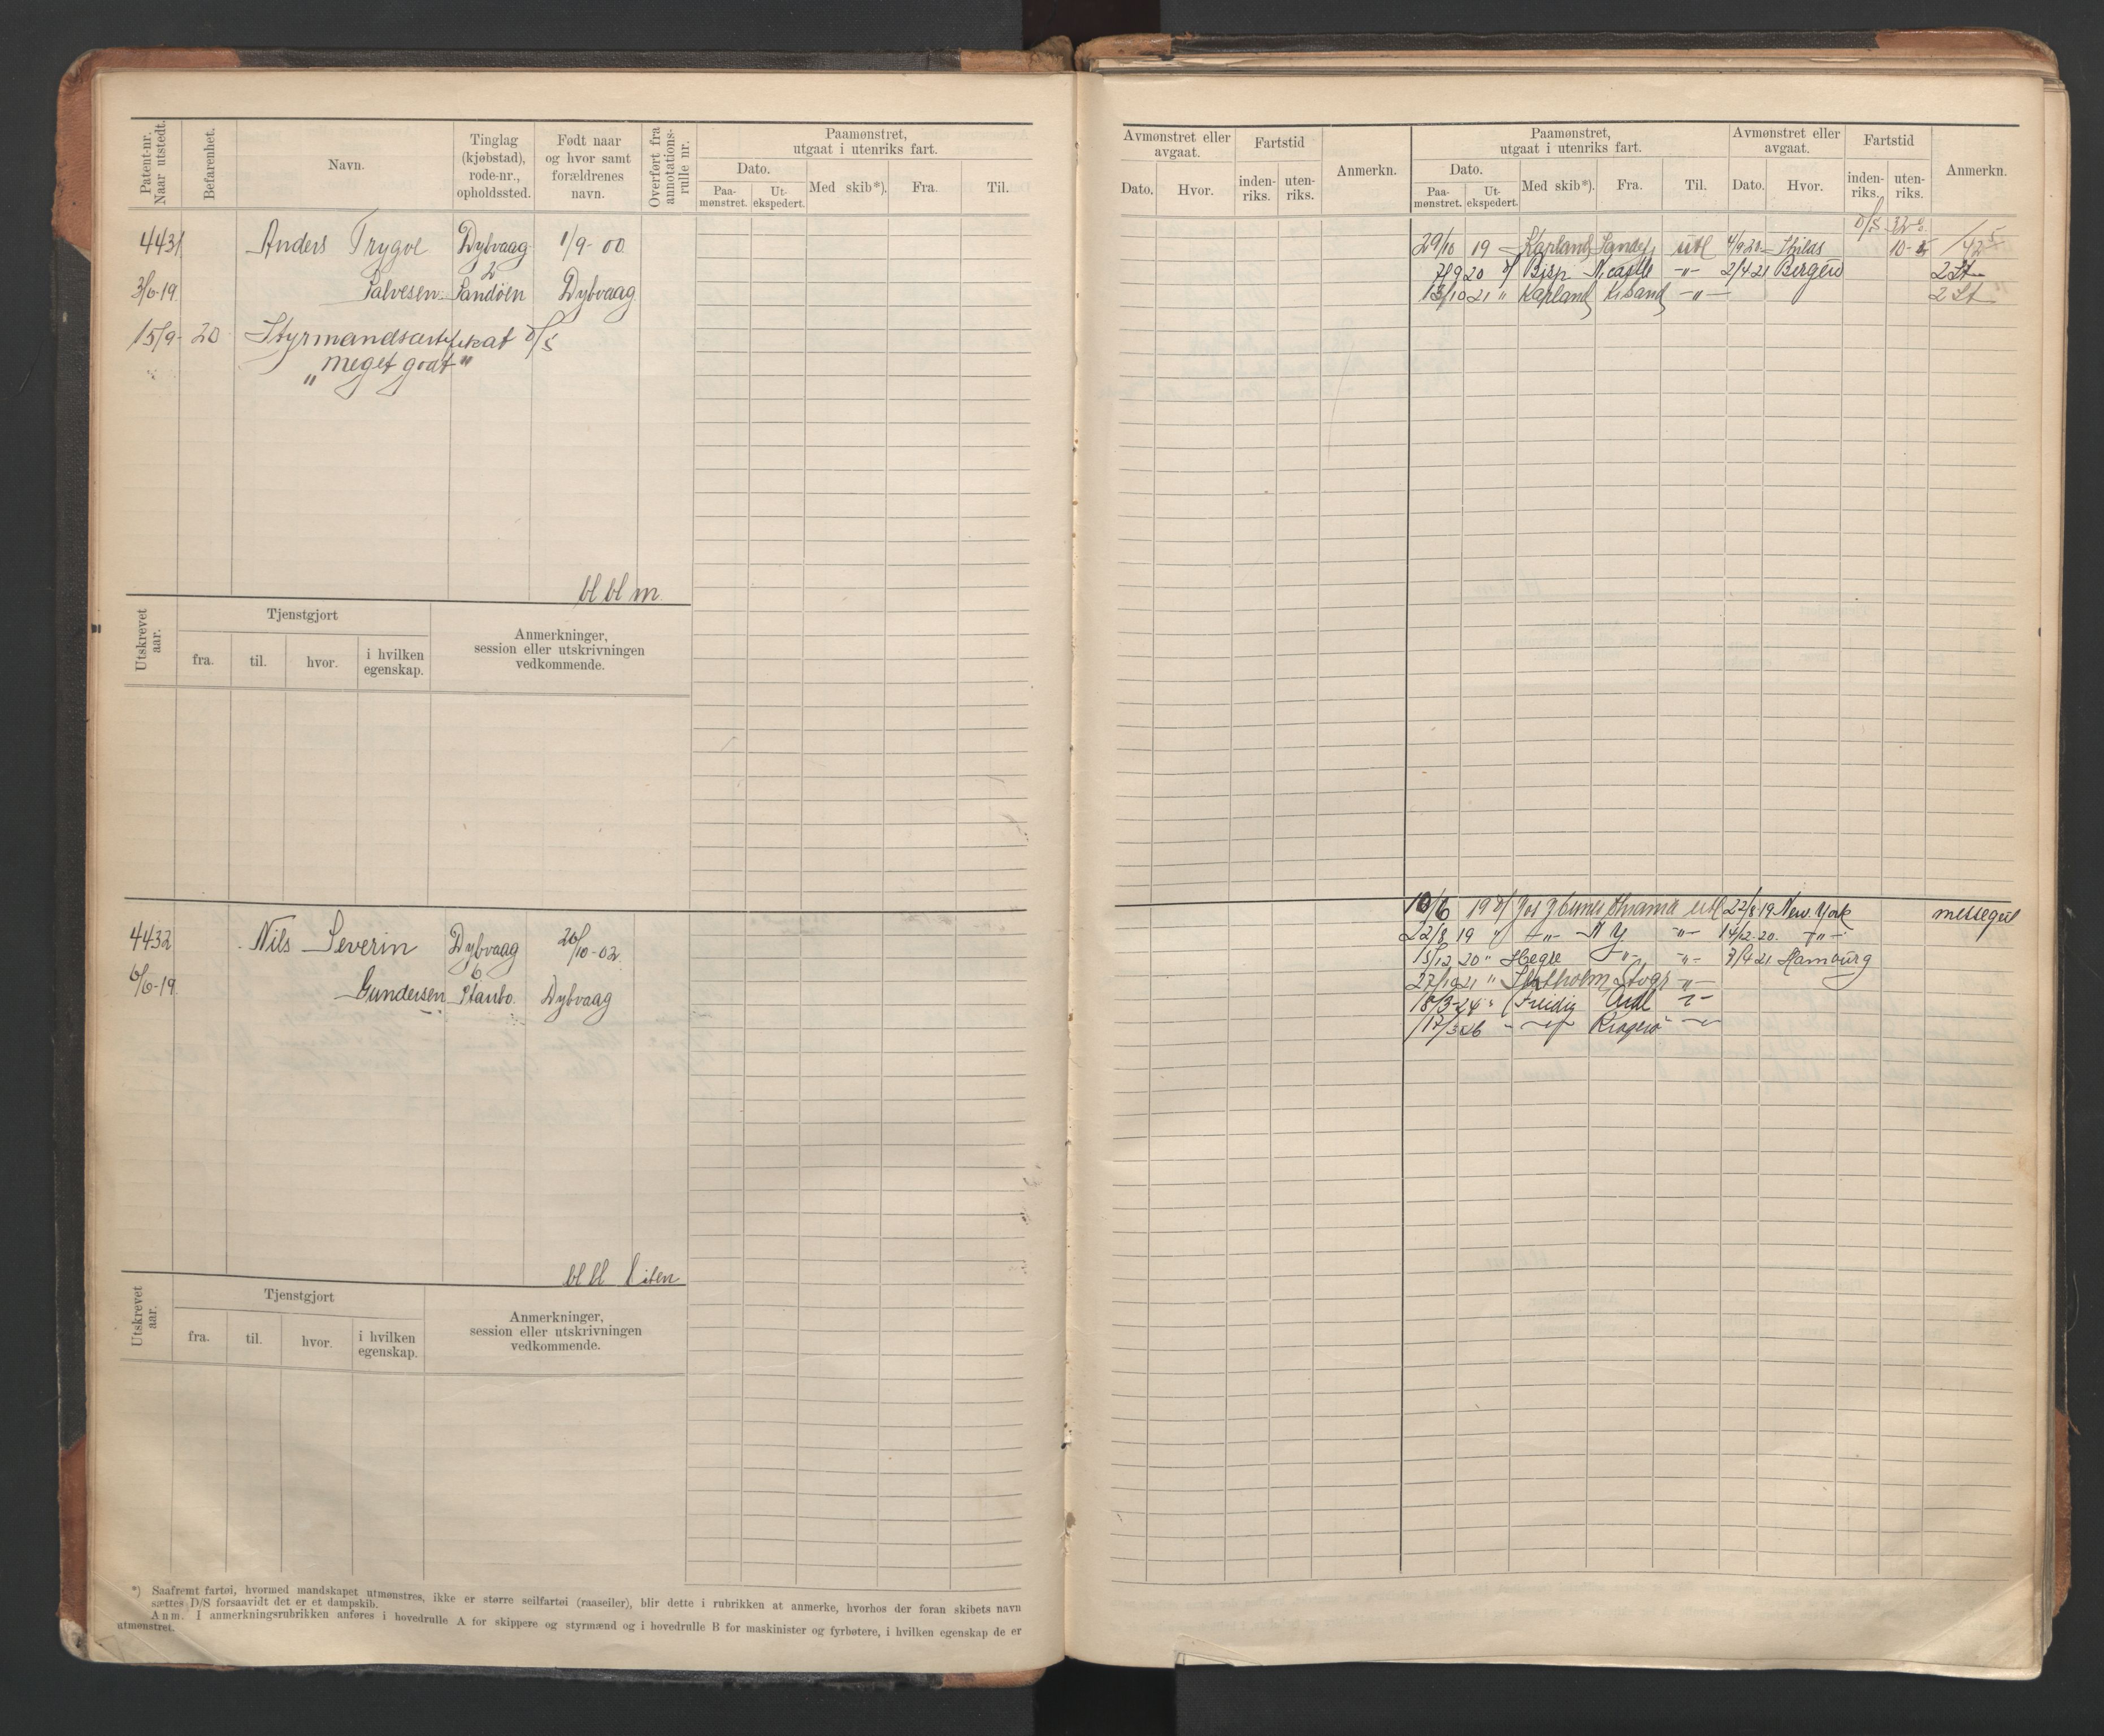 Patent-nr. Naar utstedt.
Befarenhet.
Navn.
Tinglag (kjøbstad), rode-nr., opholdssted.
Født naar og hvor samt forældrenes navn.
Overført fra annotations-rulle nr.
Paamønstret, utgaat i utenriks fart.
Dato.
Paa-mønstret.
Ut-ekspedert.
Med skib*).
Fra.
Til.
4431 Anders Trygve Dybvaag 1/9- 00
2
3/6-19 Salvesen Sandøen Dybvaag
15/9- 20 Styrmandscertifikat D/S
"meget godt"
bl bl m
Utskrevet aar.
Tjenstgjort
fra.
til.
hvor.
i hvilken egenskap.
Anmerkninger, session eller utskrivningen vedkommende.
4432 Nils Severin Dybvaag 20/10-02
6
6/6-19 Gundersen Staubo. Dybvaag
bl bl liten
Utskrevet aar.
Tjenstgjort
fra.
til.
hvor.
i hvilken egenskap.
Anmerkninger, session eller utskrivningen vedkommende.
*) Saafremt fartøi, hvormed mandskapet utmønstres, ikke er større seilfartøi (raaseiler), blir dette i rubrikken at anmerke, hvorhos der foran skibets navn
sættes D/S forsaavidt det er et dampskib.
Anm. I anmerkningsrubrikken anføres i hovedrulle A for skippere og styrmænd og i hovedrulle B for maskinister og fyrbøtere, i hvilken egenskap de er
utmønstret.
Avmønstret eller avgaat.
Dato.
Hvor.
Fartstid
inden-riks.
uten-riks.
Anmerkn.
Paamønstret, utgaat i utenriks fart.
Dato.
Paa-mønstret.
Ut-ekspedert.
Med skib*).
Fra.
Til.
Avmønstret eller avgaat.
Dato.
Hvor.
Fartstid
inden-riks.
uten-riks.
Anmerkn.
D/S 32-0
29/10 19 Kapland Sandefj utl 4/9 20 Shilds 10-5
7/9 20 " Bisp N castle -"- 2/4 21 Bergen 2 St
13/10 21 " Kapland Krsand -"- 2 St
10/6 19 utl 22/8-19 New. York messegut
22/8 19 " -"- N Y -"- 14/12-20. -"-
15/12 20 " Hegre -"- -"- 7/4 21 Hamburg
27/10 21 " -"-
18/3-24 " Freidig -"-
17/3 26 " -"- Kragerø -"-